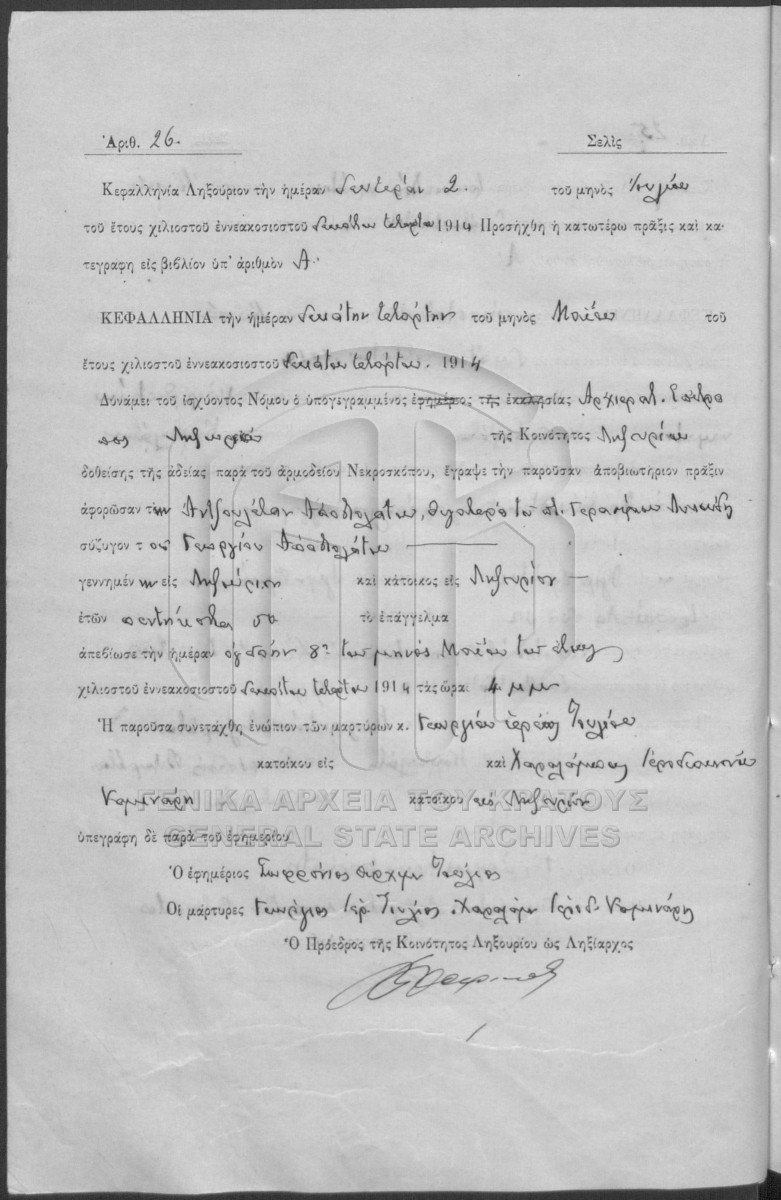 Ἀριθ. 26. Σελὶς
Κεφαλληνία Ληξούριον τὴν ἡμέραν δευτέραν 2. τοῦ μηνὸς Ἰουλίου
τοῦ ἔτους χιλιοστοῦ ἐννεακοσιοστοῦ δεκάτου τετάρτου 1914 Προσήχθη ἡ κατωτέρω πρᾶξις καὶ κα-
τεγραφη εἰς βιβλίον ὑπ' ἀριθμὸν Α.
ΚΕΦΑΛΛΗΝΙΑ τὴν ἡμέραν δεκάτην τετάρτην τοῦ μηνὸς Μαΐου τοῦ
ἔτους χιλιοστοῦ ἐννεακοσιοστοῦ δεκάτου τετάρτου. 1914
Δυνάμει τοῦ ἰσχύοντος Νόμου ὁ ὑπογεγραμμένος ἐφημέριος τῆς ἐκκλησίας Ἀρχιερατ. Ἐπίτρο
πος Ληξουρίου τῆς Κοινότητος Ληξουρίου
δοθείσης τῆς ἀδείας παρὰ τοῦ ἁρμοδείου Νεκροσκόπου, ἔγραψε τὴν παροῦσαν ἀποβιωτήριον πρᾶξιν
ἀφορῶσαν τὴν Ἀντζουλέταν θυγατέρα τοῦ ποτ. Γερασίμου
σύζυγον τοῦ Γεωργίου
γεννημένην εἰς Ληξούριον καὶ κάτοικος εἰς Ληξούριον
ἐτῶν πεντήκοντα τὸ ἐπάγγελμα
ἀπεβίωσε τὴν ἡμέραν ὀγδόην 8ην τοῦ μηνὸς Μαΐου τοῦ ἔτους
χιλιοστοῦ ἐννεακοσιοστοῦ δεκάτου τετάρτου 1914 τὰς ὥρα. 4 μ μ
Ἡ παροῦσα συνετάχθη ἐνώπιον τῶν μαρτύρων κ. Γεωργίου ἱερέως
κατοίκου εἰς καὶ Χαραλάμπους Ἱεροδιακόνου
κατοίκου Ληξούριον
ΓΕΝΙΚΑ ΑΡΧΕΙΑ ΤΟΥ ΚΡΑΤΟΥΣ
GENERAL STATE ARCHIVES
ὑπεγράφη δὲ παρὰ τοῦ ἐφημερίου
Ὁ ἐφημέριος Σωφρόνιος
Οἱ μάρτυρες Γεώργιος Ἱερ. Χαραλάμ Ἱεροδ.
Ὁ Πρόεδρος τῆς Κοινότητος Ληξουρίου ὡς Ληξίαρχος